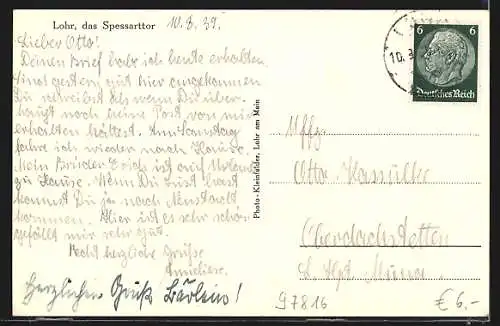 Lohr, das Spessarttor 10.3.39.
Lieber Otto!
Deinen Brief habe ich heute erhalten.
Sind gestern gut hier angekommen
Du schreibst als wenn Du über-
haupt noch keine Post von mir
erhalten hättest. Am Samstag
fahre ich wieder nach Hause.
Mein Bruder Erich ist auf Urlaub
zu Hause. Wenn Du Lust hast
kannst Du ja nach Neustadt
kommen. Hier ist es sehr schön
gefällt mir sehr gut.
Recht herzliche Grüße
Emeliese.
Herzlichen Gruß Bärlein!
Photo-Kleinfelder, Lohr am Main
10.3
6 6
Deutsches Reich
Uffz.
Otto
Oberdachstetten
L. Hpt. Muna.
97816 € 6,-